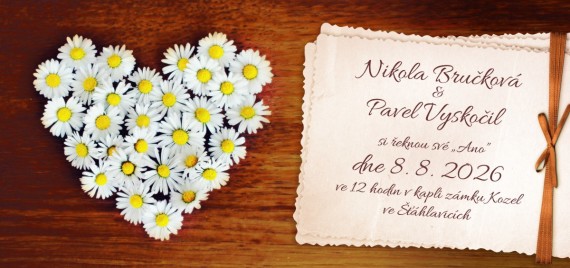 Nikola Bručková
&
Pavel Vyskočil
si řeknou své „Ano"
dne 8. 8. 2026
ve 12 hodin v kapli zámku Kozel
ve Šťáhlavicích